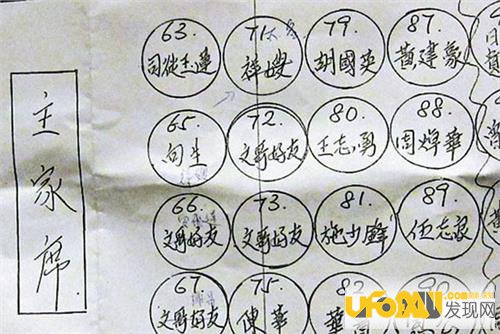 主家席
63.
71.
79.
87.
祥嫂
胡國英
黃建豪
65.
72.
80.
88.
句生
文哥好友
王志勇
周焯華
66.
73.
81.
89.
文哥好友
文哥好友
施少鋒
伍志良
67.
75.
82
90.
文哥好友
陳華
UFO
发现网